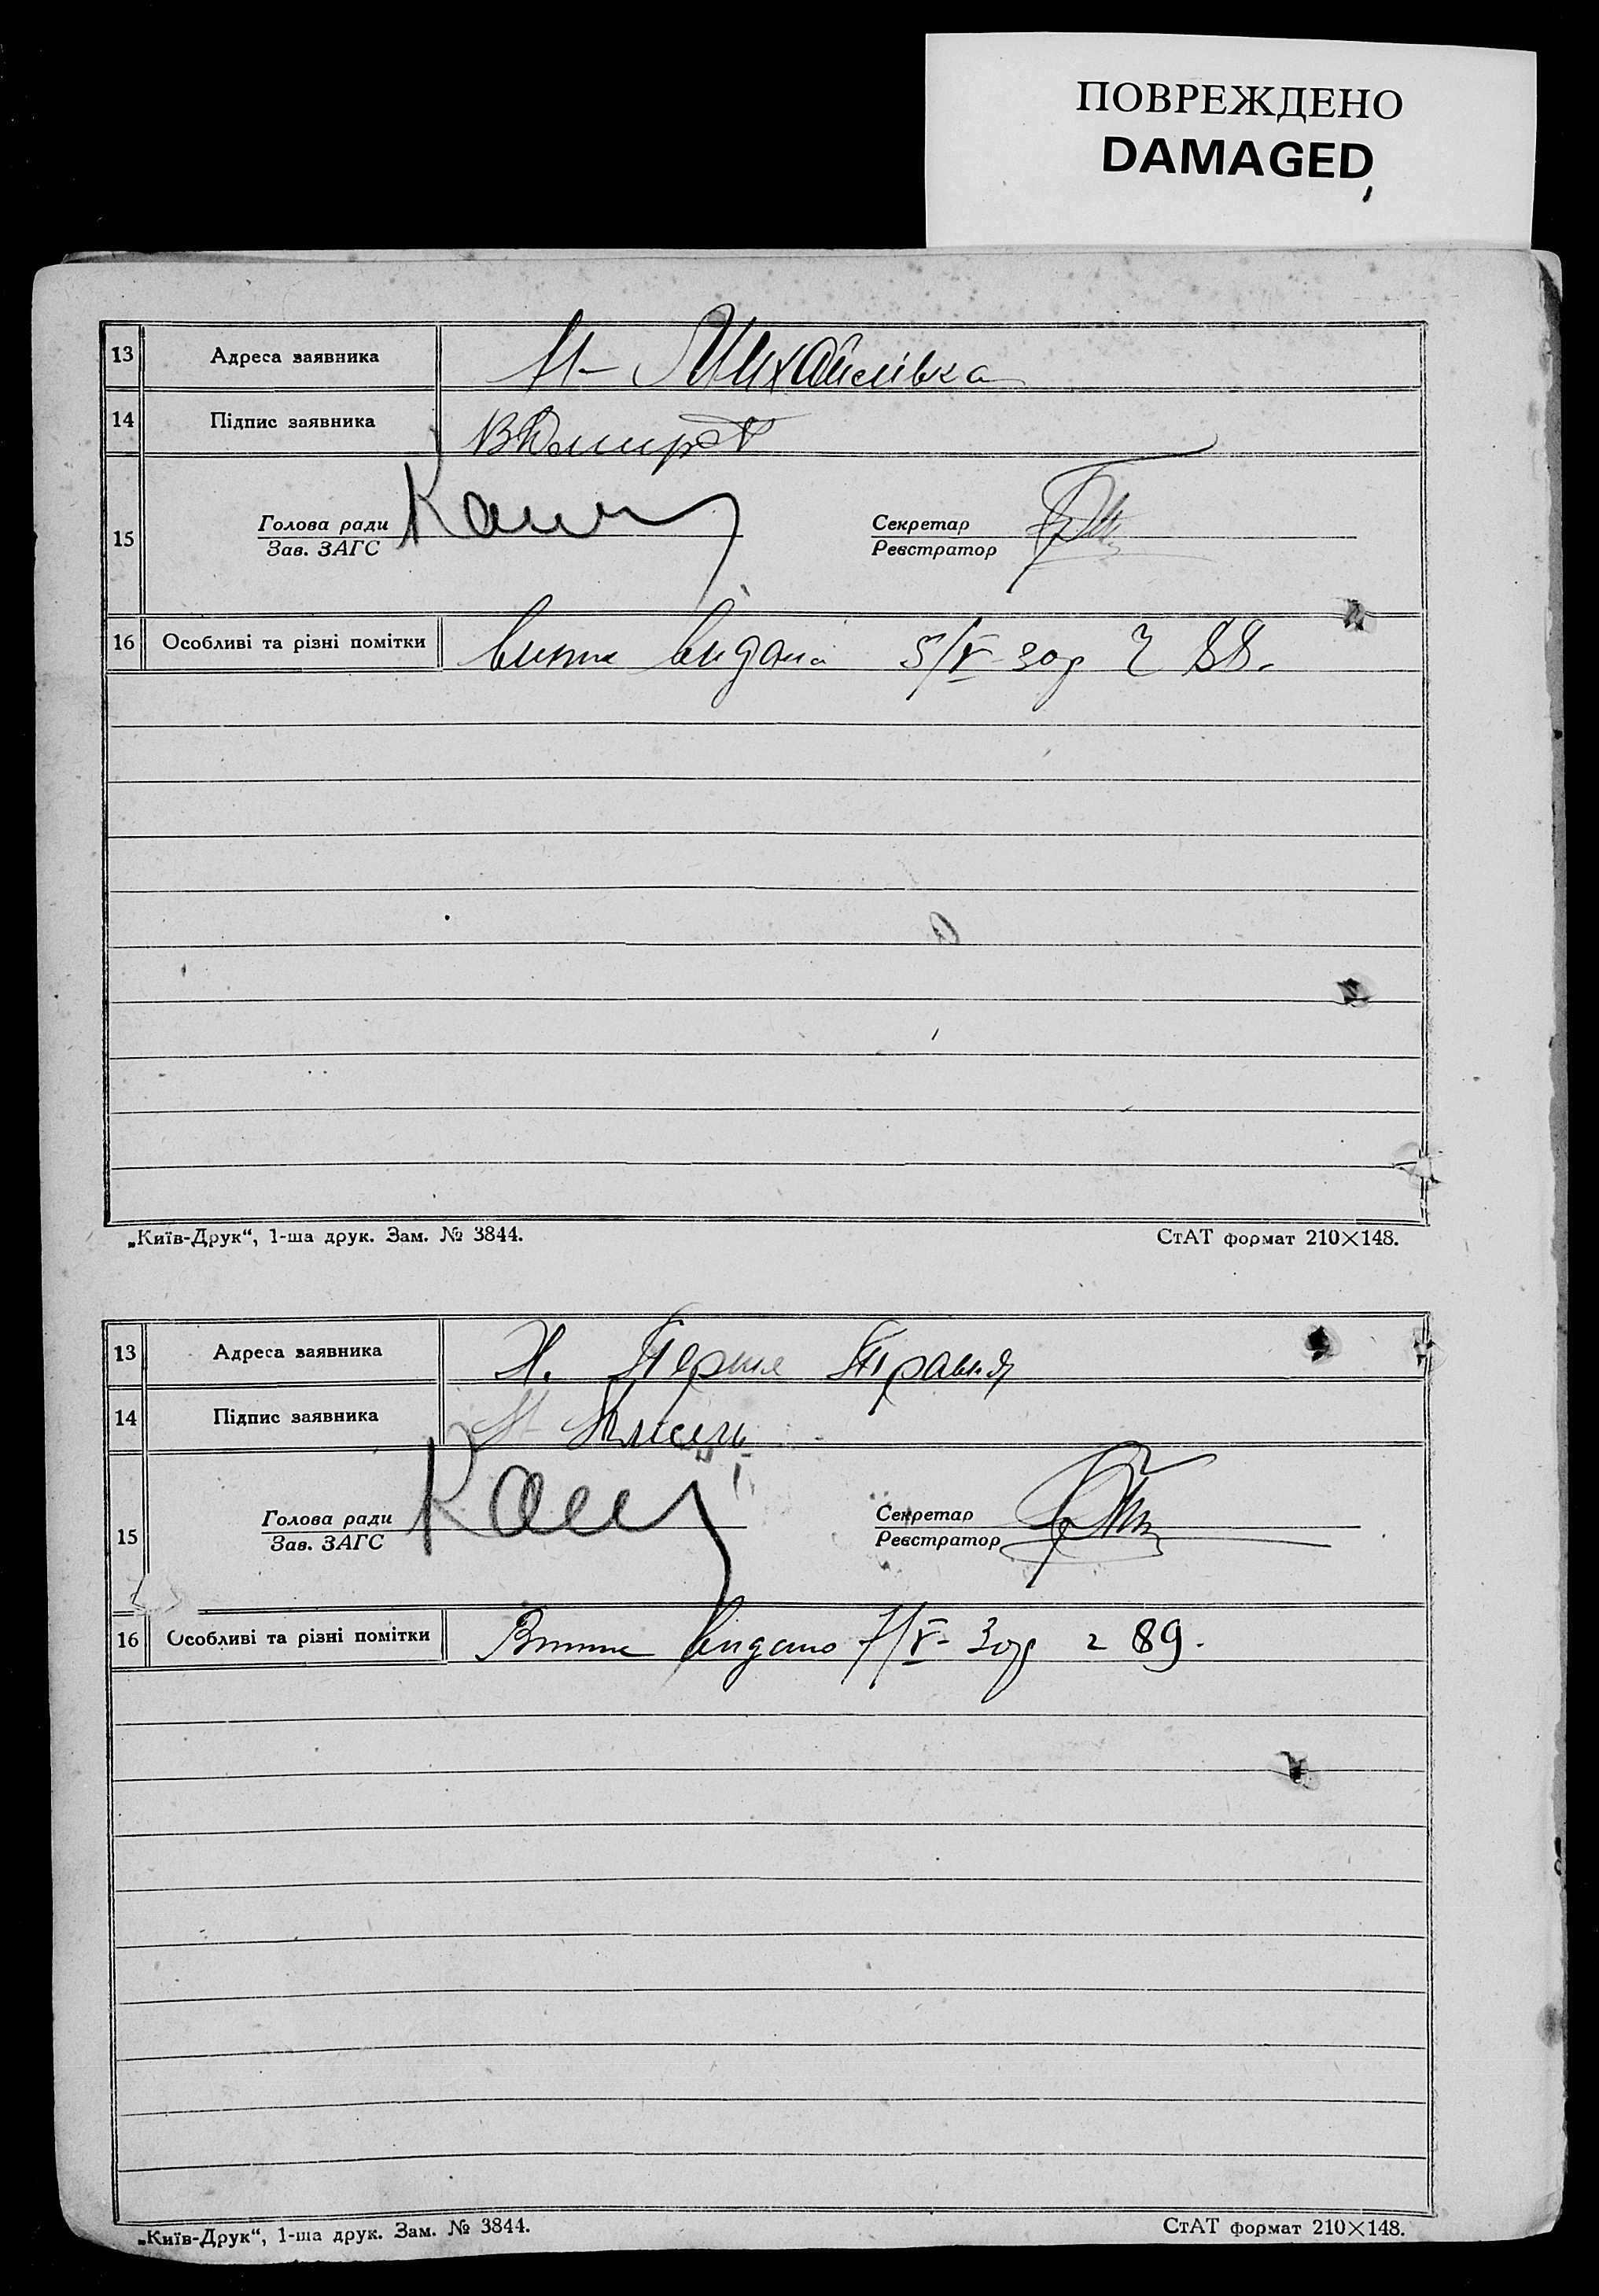 ПОВРЕЖДЕНО
DAMAGED
13 Адреса заявника Михайлівка
14 Підпис заявника
15 Голова ради Секретар
Зав. ЗАГС Реєстратор
16 Особливі та різні помітки видана 5/V-30р 88.
„Київ-Друк“, 1-ша друк. Зам. № 3844. СтАТ формат 210×148.
13 Адреса заявника Х. Перше Травня
14 Підпис заявника
15 Голова ради Секретар
Зав. ЗАГС Реєстратор
16 Особливі та різні помітки видано 7/V-30р 89.
„Київ-Друк“, 1-ша друк. Зам. № 3844. СтАТ формат 210×148.